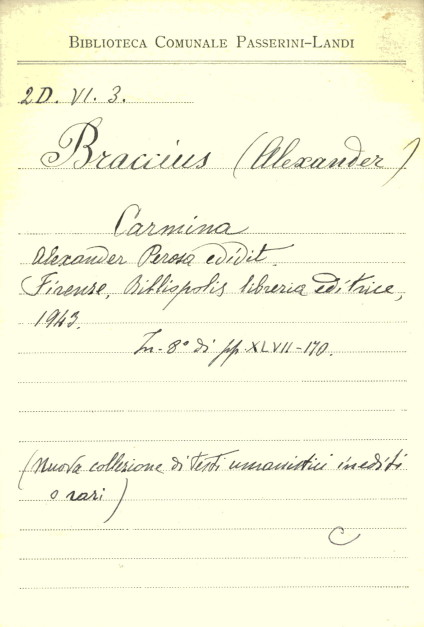 BIBLIOTECA COMUNALE PASSERINI-LANDI
2D. VI. 3.
Braccius (Alexander)
Carmina
Alexander Perosa edidit.
Firenze, Bibliopolis libreria editrice,
1943.
In-8° di pp. XLVII-170.
(Nuova collezione di testi umanistici inediti
o rari)
C